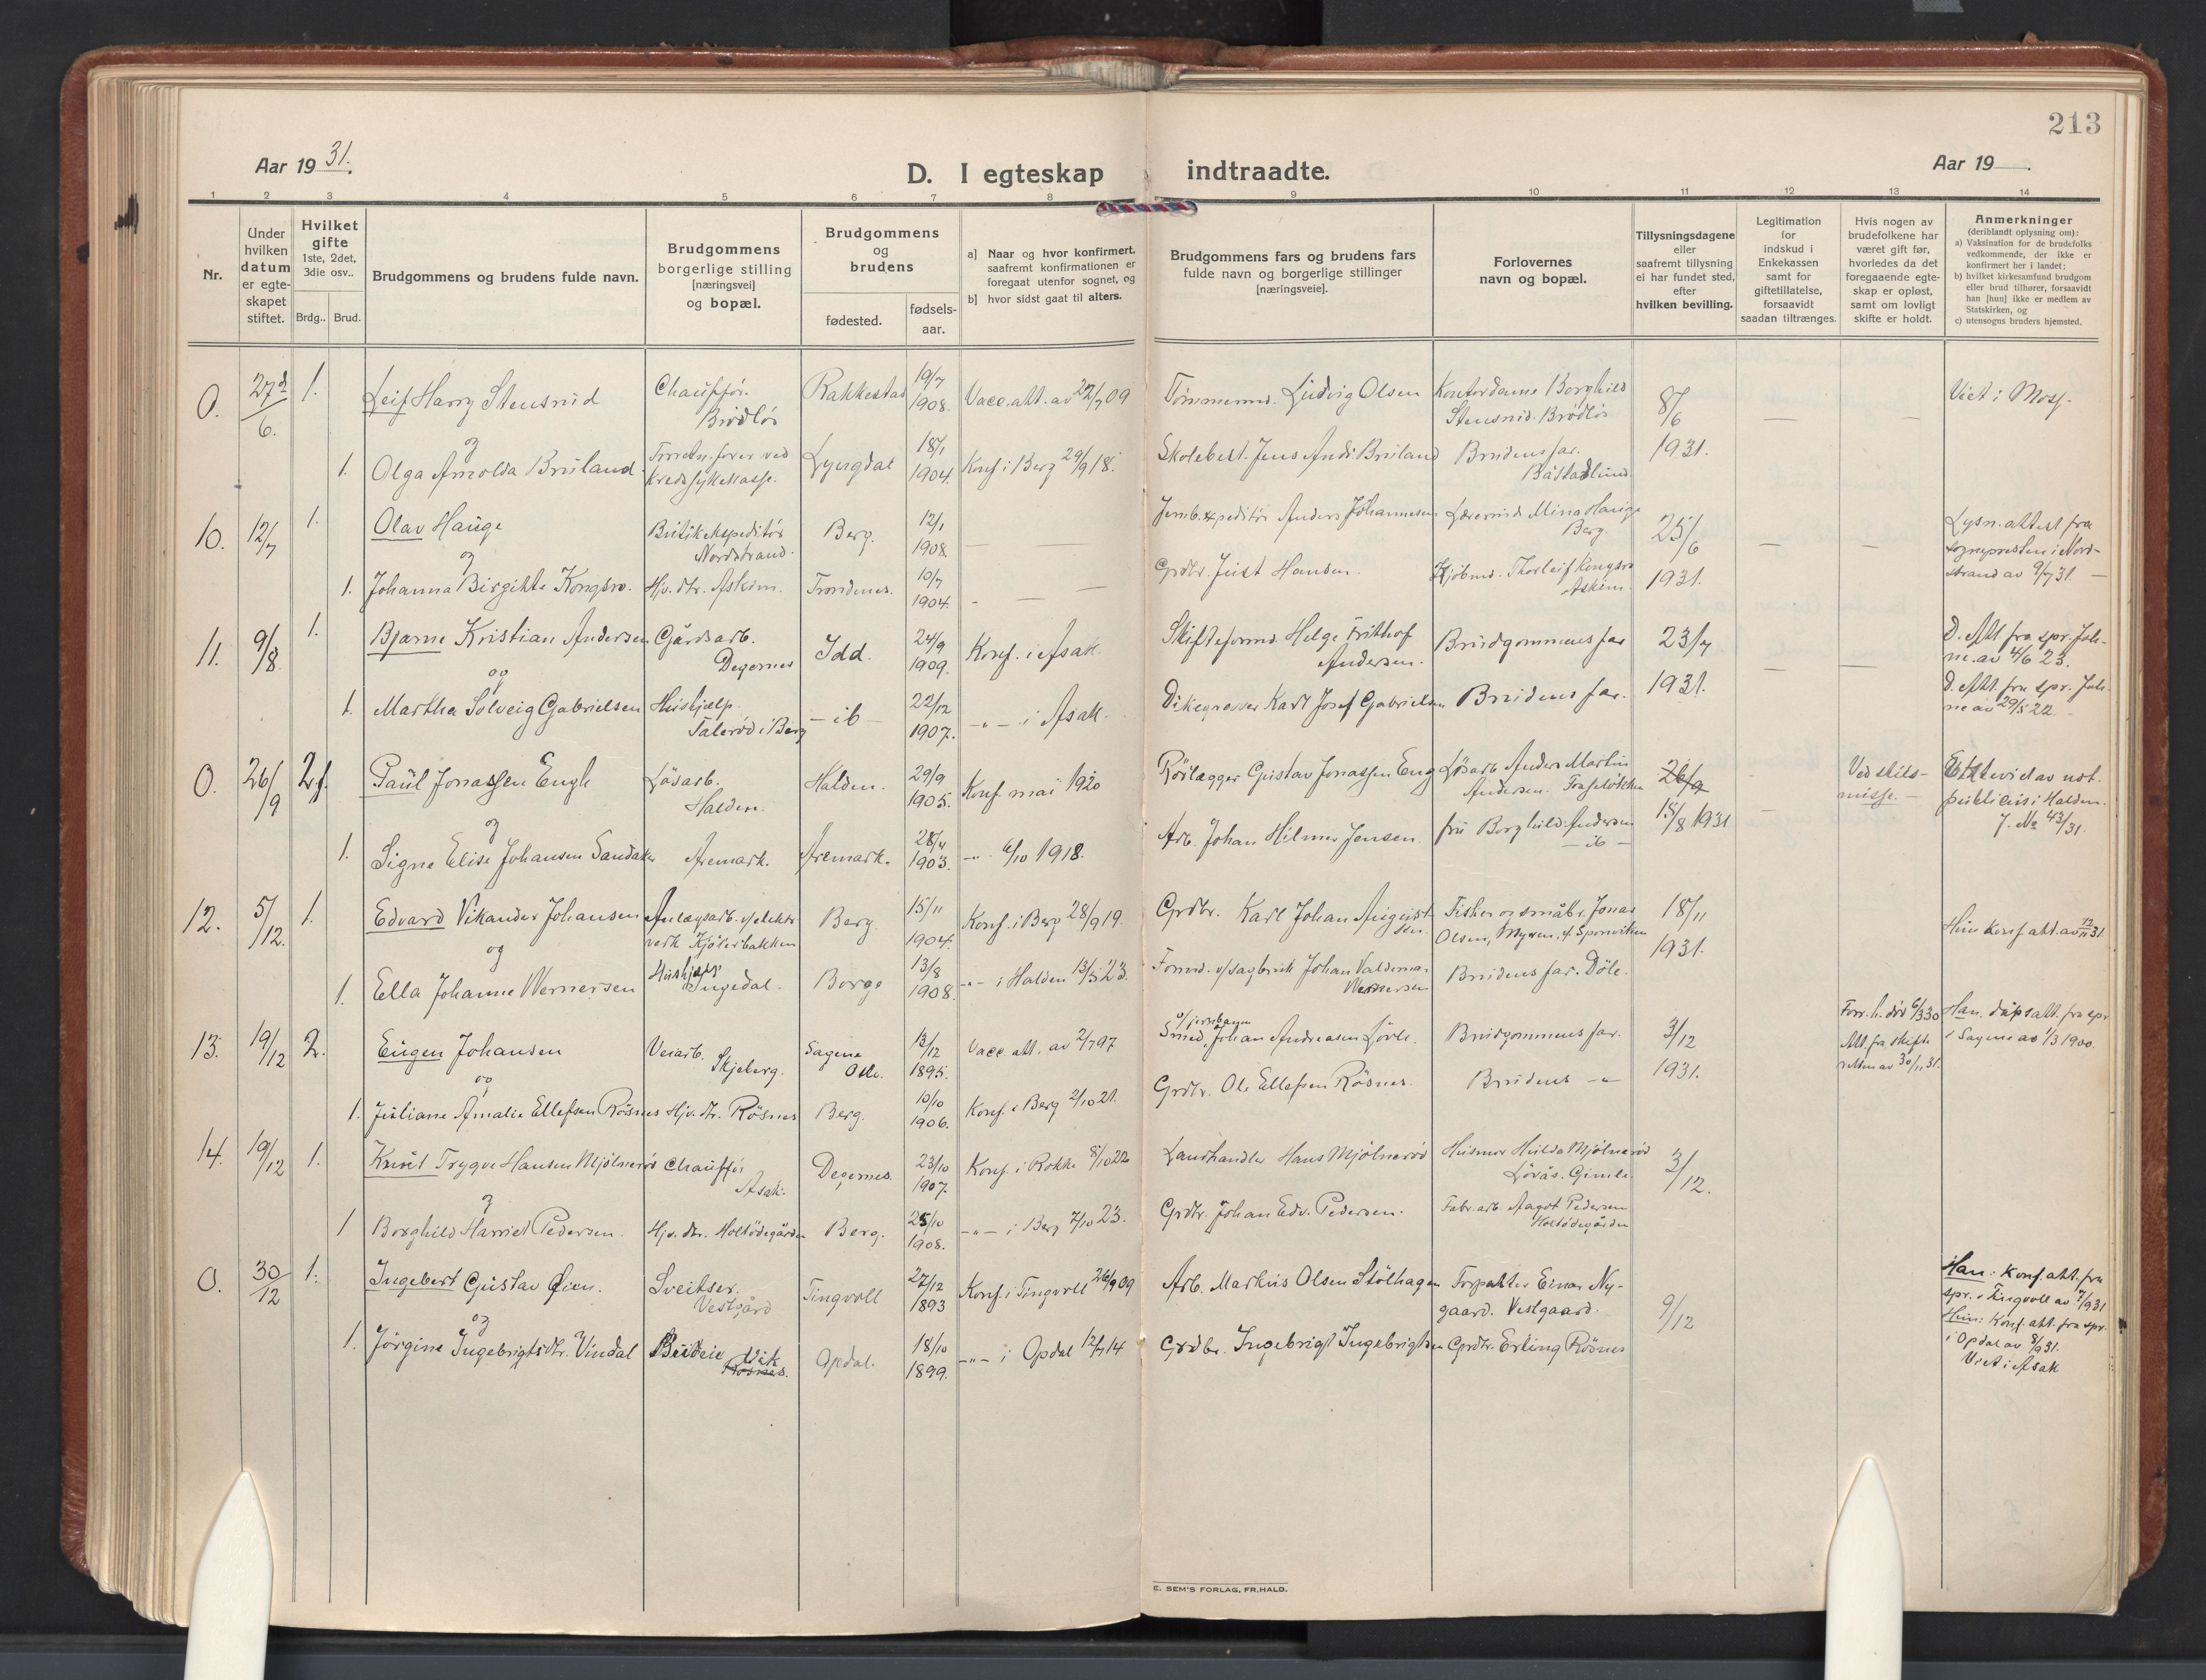 213
Aar 19 31.
D. I egteskap indtraadte.
Aar 19
1 2 3 4 5 6 7 8 9 10 11 12 13 14
Nr.
Under
hvilken
datum
er egte-
skapet
stiftet.
Hvilket
gifte
1ste, 2det,
3die osv..
Brdg.. Brud.
Brudgommens og brudens fulde navn.
Brudgommens
borgerlige stilling
[næringsvei]
og bopæl.
Brudgommens
og
brudens
fødested.
fødsels-
aar.
a] Naar og hvor konfirmert.
saafremt konfirmationen er
foregaat utenfor sognet, og
b] hvor sidst gaat til alters.
Brudgommens fars og brudens fars
fulde navn og borgerlige stillinger
[næringsveie].
Forlovernes
navn og bopæl.
Tillysningsdagene
eller
saafremt tillysning
ei har fundet sted,
efter
hvilken bevilling.
Legitimation
for
indskud i
Enkekassen
samt for
giftetillatelse,
forsaavidt
saadan tiltrænges.
Hvis nogen av
brudefolkene har
været gift før,
hvorledes da det
foregaaende egte-
skap er opløst,
samt om lovligt
skifte er holdt.
Anmerkninger
(deriblandt oplysning om):
a) Vaksination for de brudefolks
vedkommende, der ikke er
konfirmert her i landet;
b) hvilket kirkesamfund brudgom
eller brud tilhører, forsaavidt
han [hun] ikke er medlem av
Statskirken, og
c) utensogns bruders hjemsted.
0. 27/6. 1. Leif Harry Stensrud
Chauffør.
Brødløs
Rakkestad 19/7 1908. Vacc. att. av 22/7 09
Tømmermd. Ludvig Olsen
Kontordame Borghild
Stensrud. Brødløs
8/6
1931.
Viet i Moss.
og
1. Olga Arnolda Bruland
kredssykekasse.
Lyngdal 18/1 1904. Konf. i Berg 29/9 18.
Skolebest. Jens Andr. Bruland
Brudens far.
Båstadlund.
10. 12/7 1. Olav Hauge
Butikekspeditør
Nordstrand.
Berg. 12/1 1908.
Jernb. expeditør Anders Johannesen
Mina Hauge
Berg.
25/6
1931.
Lysn. attest fra
sognepresten i Nord-
strand av 9/7 31.
og
1. Johanna Birgitte Kongsro.
Hjv. dtr. Askim.
Trondenes. 10/7 1904.
Grdbr. Just Hansen.
Kjøbmd. Thorleif Kongsro
Askim.
11. 9/8. 1. Bjarne Kristian Andersen
Gårdsarb.
Degernes
Idd. 24/9 1909. Konf. i Asak.
Skifteformd. Helge Frithof
Andersen.
Brudgommens far
23/7
1931.
D. Att. fra spr. Joh-
ne. av 4/6 23.
og
1. Martha Solveig Gabrielsen
Hushjælp
i Berg
- ib - 22/12 1907. -"- i Asak.
Dikegraver Karl Josef Gabrielsen
Brudens far.
D. Att. fra spr. Joh-
ne av 29/5 22.
0. 26/9 2. Paul Jonassen Engh
Løsarb.
Halden.
Halden. 29/9 1905. Konf. mai 1920
Rørlægger Gustav Jonassen Eng
Løsarb. Anders Martin
Andersen.
26/9
15/8 1931
Ved skils-
misse.
av not.
publicus i Halden.
J. No 43/31.
og
1. Signe Elise Johansen Sandaker
Aremark.
Aremark. 28/4 1903. -"- 6/10 1918.
Arb. Johan Hilmer Jensen.
fru Borghild Andersen
- ib -
12. 5/12. 1. Edvard Vikander Johansen
Anlægsarb. v/elektr.
verk
Berg. 15/11 1904. Konf. i Berg 28/9 19.
Grdbr. Karl Johan August-
sen.
Fisker og småbr. Jonas
Olsen, Myren, Sponviken
18/11
1931.
Hun konf. att. av 12/11 31.
og
1. Ella Johanne Wernersen
Hushjælp
Ingedal.
Borge 13/8 1908. -"- i Halden 13/5 23.
Formd. v/sagbruk Johan Valdemar
Wernersen
Brudens far. Døle.
13. 19/12 2. Eugen Johansen
Veiarb.
Skjeberg.
Sagene
Oslo.
13/12 1895. Vacc. att. av 2/7 97
v/jernbanen
Smed Johan Andreasen
Brudgommens far.
3/12
1931.
Forr. h. død 6/3 30
Att. fra skifte
retten av 30/11 31.
Han. dåpsatt. fra spr
i Sagene av 1/3 1900.
og
1. Juliane Amalie Ellefsen Røsnes
Hjv. dtr. Røsnes
Berg. 10/10 1906. Konf. i Berg 2/10 21.
Grdbr. Ole Ellefsen Røsnes.
Brudens -"-
14. 19/12 1. Knut Trygve Hansen Mjølnerød
Chauffør
Asak.
Degernes. 23/10 1907. Konf. i Rokke 8/10 22
Landhandler Hans Mjølnerød
Husmor Hulda Mjølnerød
Løvås. Gimle.
3/12.
og
1 Borghild Harriet Pedersen.
Hjv. dtr. Holtødegården
Berg. 25/10 1908. -"- i Berg 7/10 23.
Grdbr. Johan Edv. Pedersen.
Fabr. arb. Aagot Pedersen
Holtødegården
0. 30/12 1. Ingebert Gustav Øien.
Sveitser.
Vestgård
Tingvoll 27/12 1893 Konf. i Tingvoll 26/9 09
Arb. Markus Olsen Stølhagen
Forpakter Einar Ny-
gaard. Vestgaard.
9/12
Han: Konf. att. fra
spr. i Tingvoll av 7/9 31
Hun: Konf. att. fra spr.
i Opdal av 8/9 31.
Viet i Asak
og
1. Jørgine Ingebrigtsdtr. Vindal
Budeie Vik
Røsnes.
Opdal. 18/10 1899. -"- i Opdal 12/7 14
Grdbr. Ingebrigt Ingebrigtsen
Grdbr. Erling Røsnes
E. SEM'S FORLAG, FR.HALD.